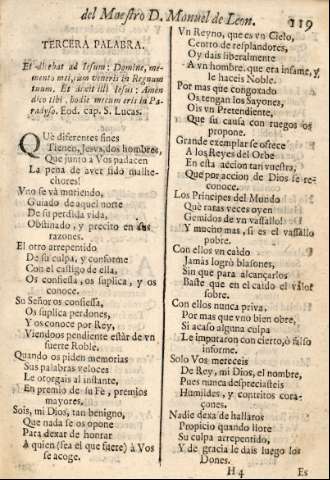 del Maestro D. Manuel de Leon. 119
TERCERA PALABRA.
Et dicebat ad Iesum: Domine, me-
mento mei, cum veneris in Regnum
tuum. Et dixit illi Iesus: Amen
dico tibi, hodie mecum eris in Pa-
radyso. Eod. cap. S. Lucas.
QUè diferentes fines
Tienen, Jesvs, dos hombres,
Que junto à Vos padacen
La pena de aver sido malhe-
chores!
Vno se và muriendo,
Guiado de aquel norte
De su perdida vida,
Obstinado, y precito en sus
razones.
El otro arrepentido
De su culpa, y conforme
Con el castigo de ella,
Os confiessa, os suplica, y os
conoce.
Su Señor os confiessa,
Os suplica perdones,
Y os conoce por Rey,
Viendoos pendiente estàr de vn
fuerte Roble.
Quando os piden memorias
Sus palabras veloces
Le otorgais al instante,
En premio de su Fè, premios
mayores.
Sois, mi Dios, tan benigno,
Que nada se os opone
Para dexar de honrar
A quien (sea el que fuere) à Vos
se acoge.
Vn Reyno, que es vn Cielo,
Centro de resplandores,
Oy dais liberalmente
A vn hombre, que era infame, y
le haceis Noble.
Por mas que congoxado
Os tengan los Sayones,
Ois vn Pretendiente,
Que su causa con ruegos os
propone.
Grande exemplar se ofrece
A los Reyes del Orbe
En esta accion tan vuestra,
Que por accion de Dios se re-
conoce.
Los Principes del Mundo
Què raras veces oyen
Gemidos de vn vassallo!
Y mucho mas, si es el vassallo
pobre.
Con ellos vn caido
Jamàs logrò blasones,
Sin que para alcançarlos
Baste que en el caido el valor
sobre.
Con ellos nunca priva,
Por mas que vno bien obre,
Si acaso alguna culpa
Le imputaron con cierto, ò falso
informe.
Solo Vos mereceis
De Rey, mi Dios, el nombre,
Pues nunca despreciasteis
Humildes, y contritos cora-
çones.
Nadie dexa de hallaros
Propicio quando llore
Su culpa arrepentido,
Y de gracia le dais luego los
Dones.
H 4 Es